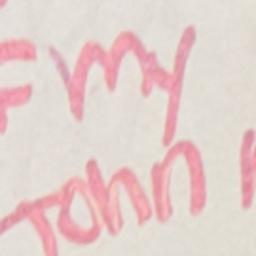 my
John